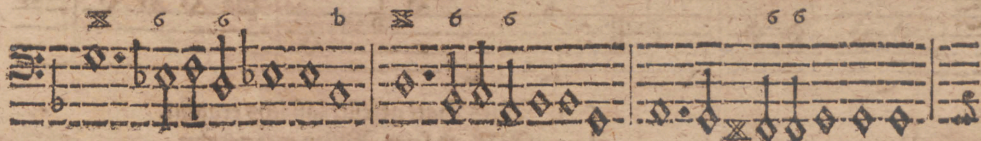 6 6 b 6 6 6 6